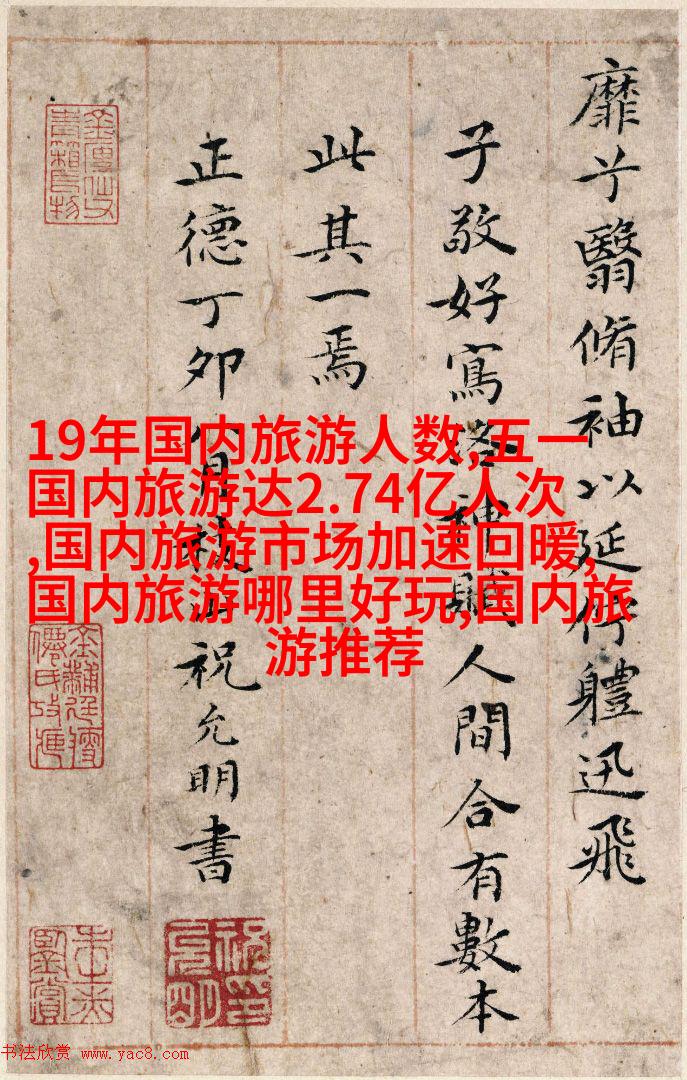 靡兮翳脩袖以延佇體迅飛
子敬好寫洛神賦人間合有數本
此其一焉
正德丁卯八月祝允明書
19年国内旅游人数,五一
国内旅游达2.74亿人次
,国内旅游市场加速回暖,
国内旅游哪里好玩,国内旅
游推荐
书法欣赏 www.yac8.com